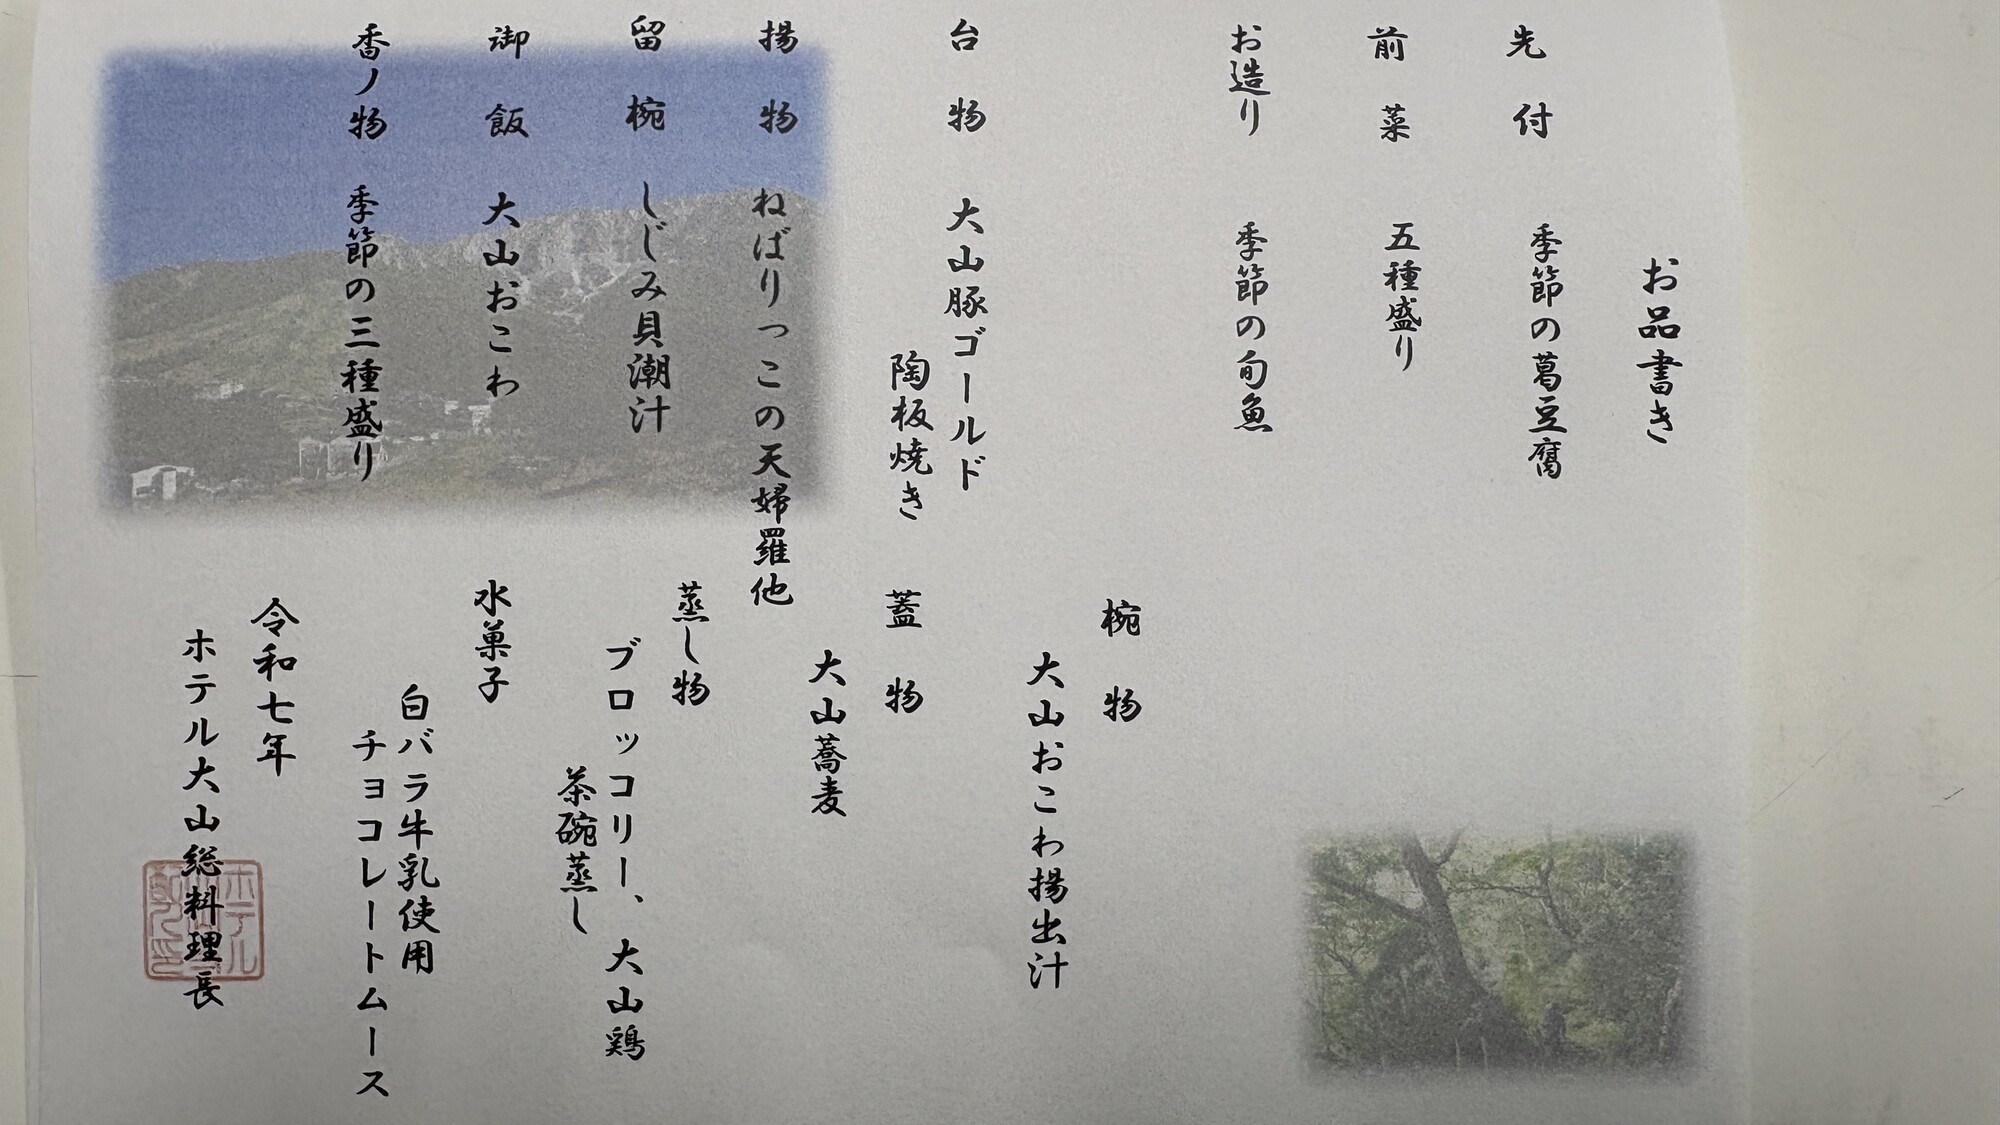 お品書き
先付 季節の葛豆腐
前菜 五種盛り
お造り 季節の旬魚
椀物
大山おこわ揚出汁
台物 大山豚ゴールド
陶板焼き
蓋物
大山蕎麦
揚物 ねばりっこの天婦羅他
蒸し物
ブロッコリー、大山鶏
茶碗蒸し
留椀 しじみ貝潮汁
御飯 大山おこわ
香ノ物 季節の三種盛り
水菓子
白バラ牛乳使用
チョコレートムース
令和七年
ホテル大山総料理長